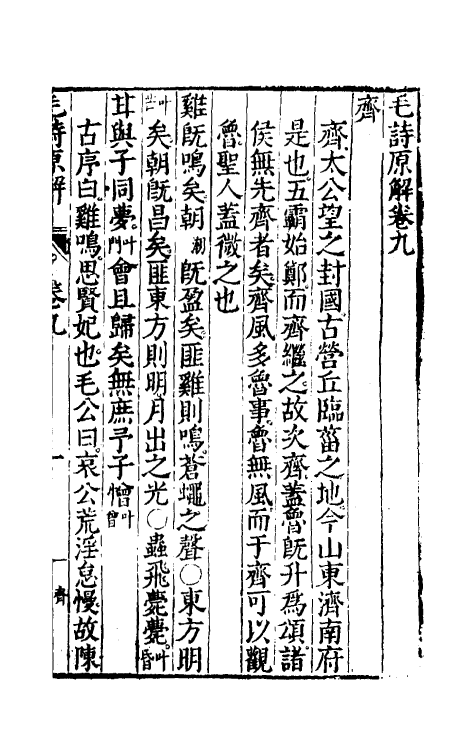 毛詩原解卷九
齊
齊太公望之封國古營丘臨菑之地今山東濟南府
是也五霸始鄭而齊繼之故次齊蓋魯既升為頌諸
侯無先齊者矣齊風多魯事魯無風而于齊可以觀
魯聖人蓋微之也
雞既鳴矣朝潮既盈矣匪雞則鳴蒼蠅之聲○東方明
叶芒矣朝既昌矣匪東方則明月出之光○蟲飛薨薨叶昏
甘與子同夢叶門會且歸矣無庶予子憎叶曾
古序曰雞鳴思賢妃也毛公曰哀公荒淫怠慢故陳
毛詩原解 卷九 一 齊